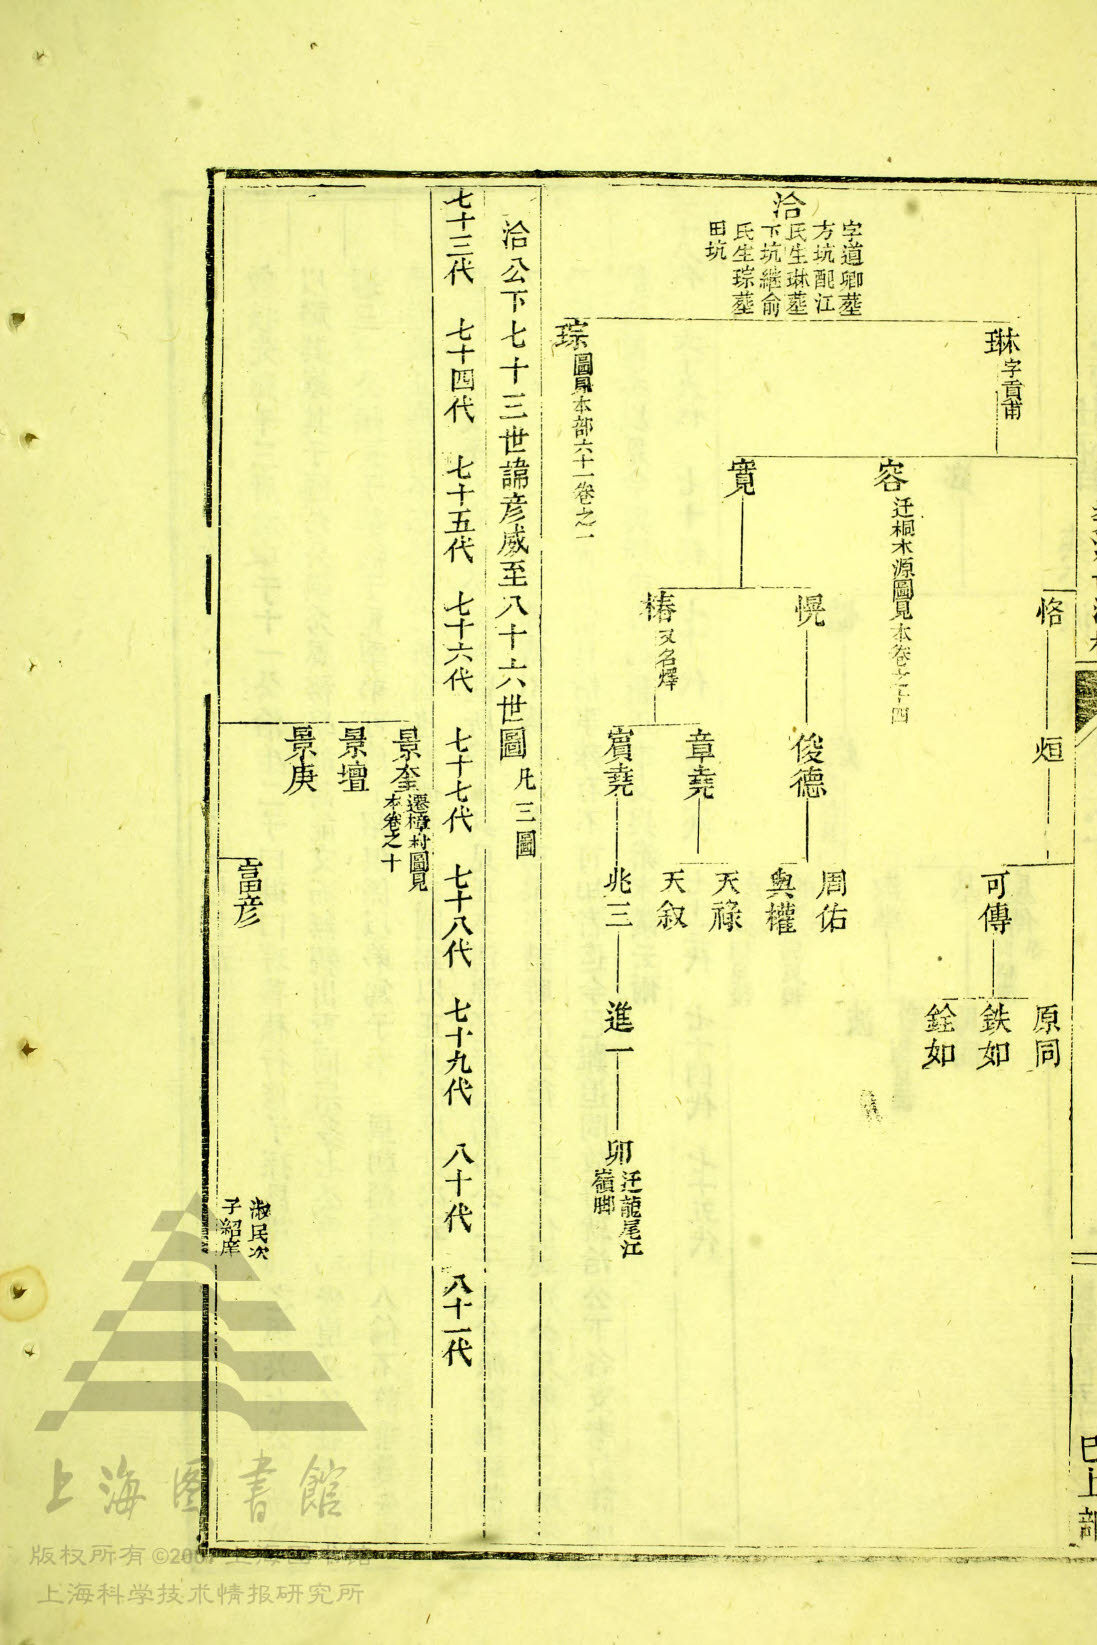 洽
字道卿墓
方坑配江
氏生琳墓
下坑継俞
氏生琮墓
田坑
琳字貢甫
琮圖見本部六十一卷之一
容迁桐木源圖見本卷之十四
寬
恪
愰
椿又名燡
烜
俊德
章堯
賓堯
可傳
周佑
與權
天祿
天叙
兆三
原同
鉄如
銓如
進一
卯
迁龍尾江
嶺脚
洽公下七十三世諱彦威至八十六世圖凡三圖
七十三代 七十四代 七十五代 七十六代 七十七代 七十八代 七十九代 八十代 八十一代
景奎
遷樟村圖見
本卷之十
景壇
景庚
富彦
淑民次
子紹庠
上海图書館
版权所有©200
上海科学技术情报研究所